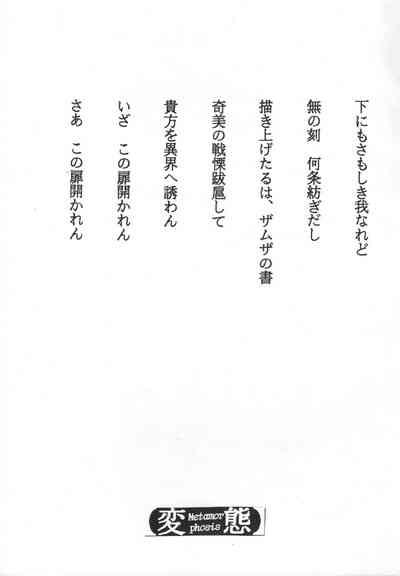 下にもさもしき我なれど
無の刻　何条紡ぎだし
描き上げたるは、ザムザの書
奇美の戦慄跋扈して
貴方を異界へ誘わん
いざ　この扉開かれん
さあ　この扉開かれん
変 Metamor
phosis 態